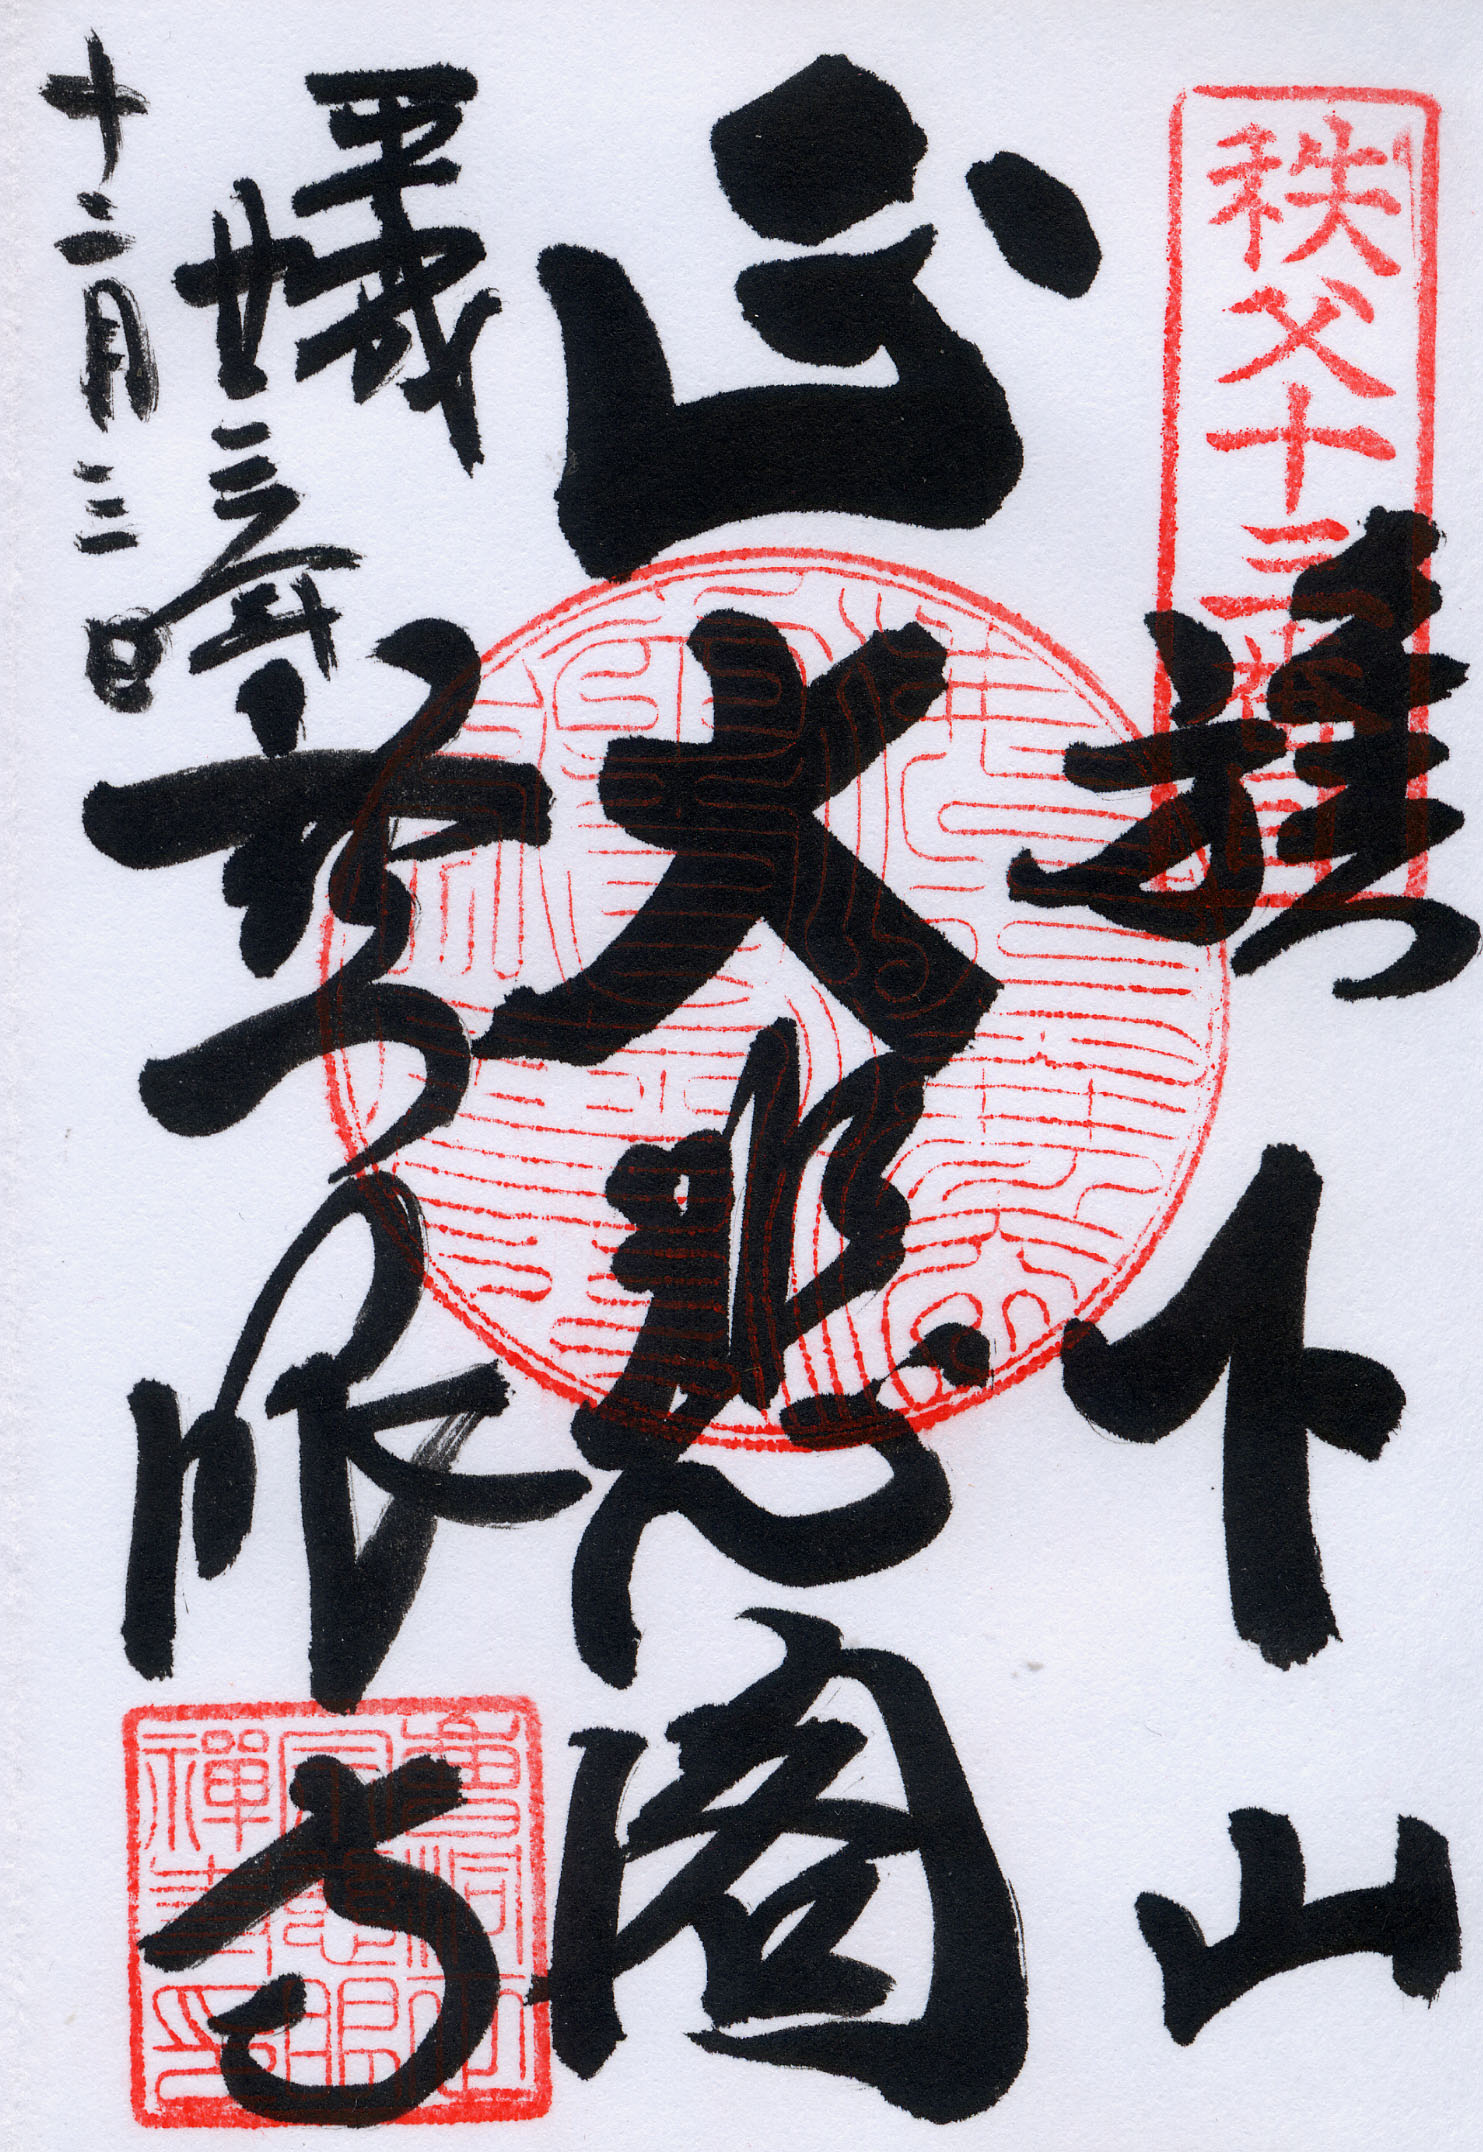 秩父十三番
旗下山
大悲閣
慈眼寺
平成
廿三年
十二月三日